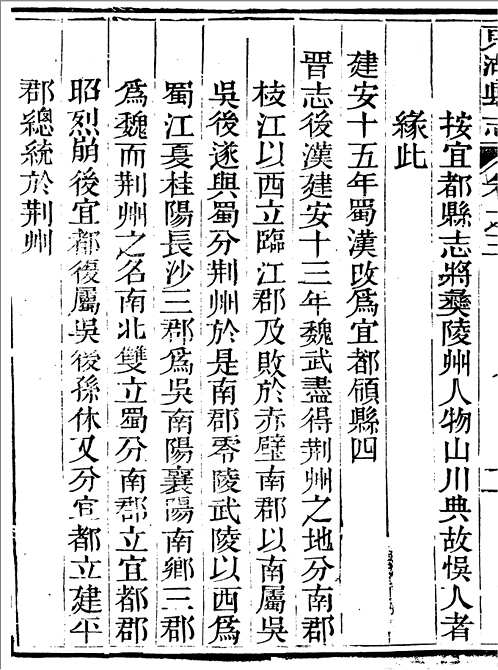 東湖縣志
按宜都縣志將彝陵州人物山川典故悞人者
緣此
建安十五年蜀漢改爲宜都領縣四
晋志後漢建安十三年魏武盡得荆州之地分南郡
枝江以西立臨江郡及敗於赤壁南郡以南屬吳
吳後遂與蜀分荆州於是南郡零陵武陵以西爲
蜀江夏桂陽長沙三郡爲吳南陽襄陽南鄉三郡
爲魏而荆州之名南北雙立蜀分南郡立宜都郡
昭烈崩後宜都復屬吳後孫休又分宜都立建平
郡總統於荆州